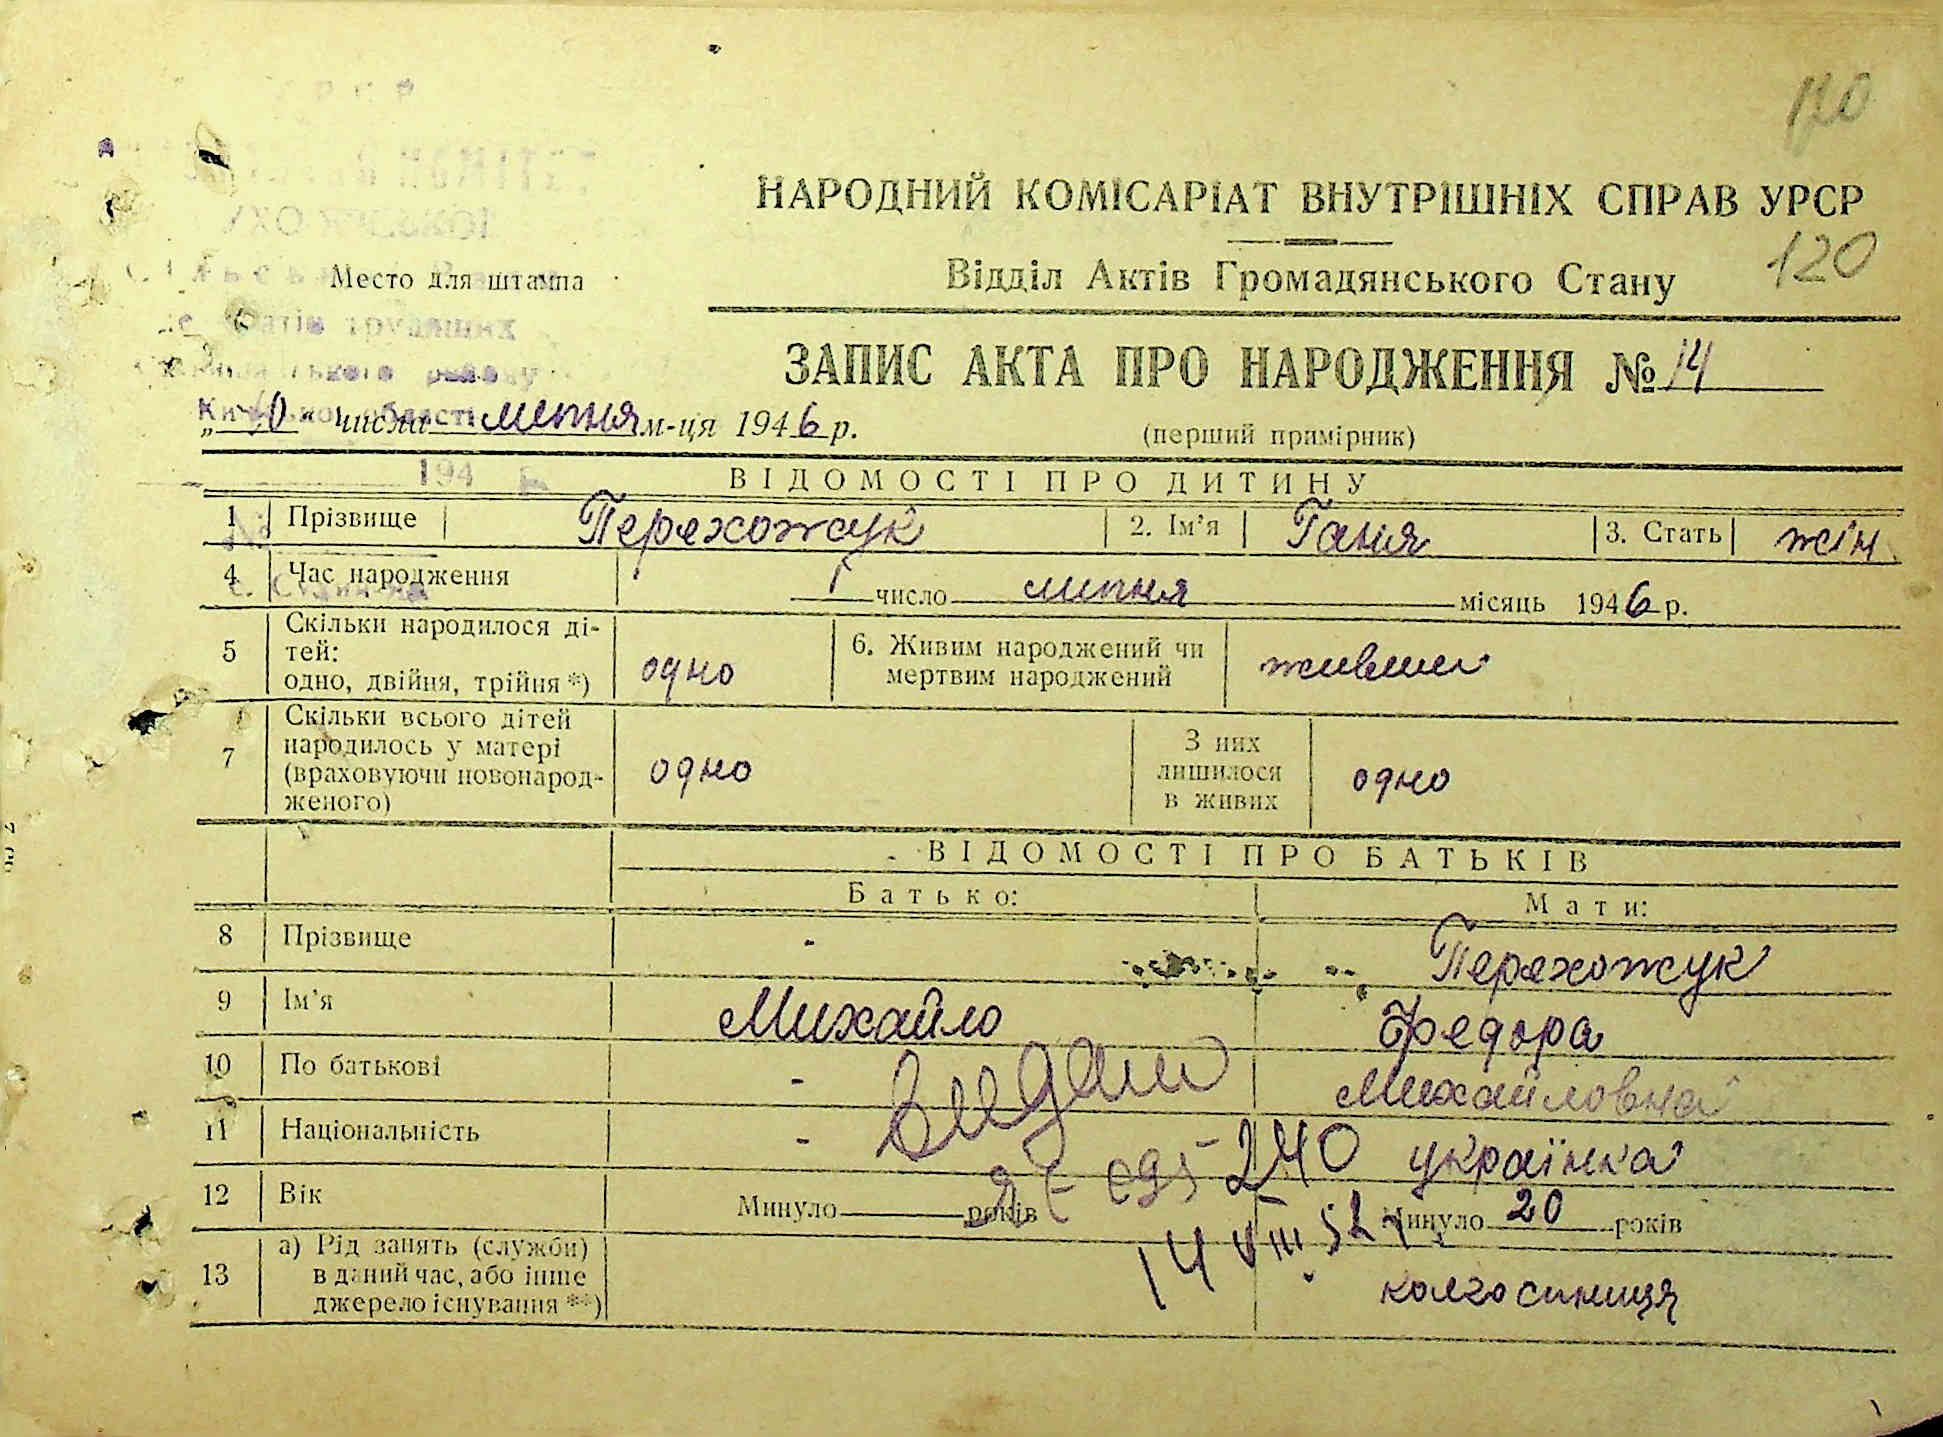 120
НАРОДНИЙ КОМІСАРІАТ ВНУТРІШНІХ СПРАВ УРСР
120
Место для штампа
Відділ Актів Громадянського Стану
ЗАПИС АКТА ПРО НАРОДЖЕННЯ № 14
„10" числа липня м-ця 1946 р.
(перший примірник)
194
ВІДОМОСТІ ПРО ДИТИНУ
1 Прізвище Перехожук 2. Ім'я Ганя 3. Стать жін
4 Час народження 1 число липня місяць 1946 р.
5 Скільки народилося ді-
тей:
одно, двійня, трійня *) одно
6. Живим народжений чи
мертвим народжений живим
7 Скільки всього дітей
народилось у матері
(враховуючи новонарод-
женого) одно
З них
лишилося
в живих одно
ВІДОМОСТІ ПРО БАТЬКІВ
Батько: Мати:
8 Прізвище - Перехожук
9 Ім'я Михайло Федора
10 По батькові - Михайловна
11 Національність - українка
240
12 Вік Минуло років Минуло 20 років
14 VIII 52
13 а) Рід занять (служби)
в даний час, або інше
джерело існування **) колгоспниця